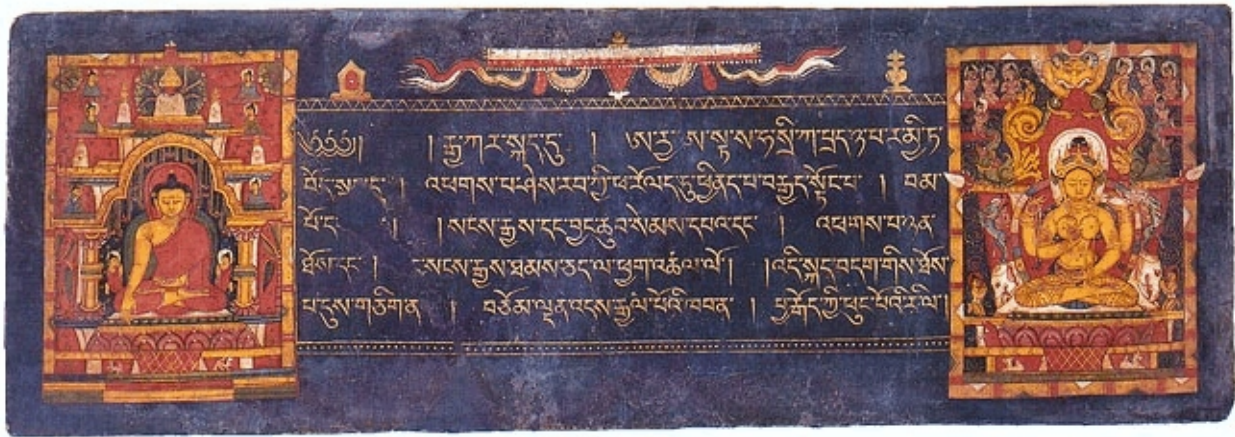 ༄༅༅།། །རྒྱ་ཀར་སྐད་དུ། ཨརྱ་ཨ་སྟ་ས་ཧ་སྲི་ཀ་པྲད་ཉ་པ་ར་མྱི་ཏ་
བོད་སྐད་དུ། འཕགས་པ་ཤེས་རབ་ཀྱི་ཕ་རོལ་དུ་ཕྱིནད་པ་བརྒྱད་སྟོང་པ། བམ་
པོ་དང་ །སངས་རྒྱས་དང་བྱང་ཆུབ་སེམས་དཔའ་དང་། འཕགས་པ་ཉན་
ཐོས་དང་། སངས་རྒྱས་ཐམས་ཅད་ལ་ཕྱག་འཚལ་ལོ།། །འདི་སྐད་བདག་གིས་ཐོས་
པ་དུས་གཅིག་ན། བཅོམ་ལྡན་འདས་རྒྱལ་པོའི་ཁབ་ན། བྱ་རྒོད་ཀྱི་ཕུང་པོའི་རི་ལ།